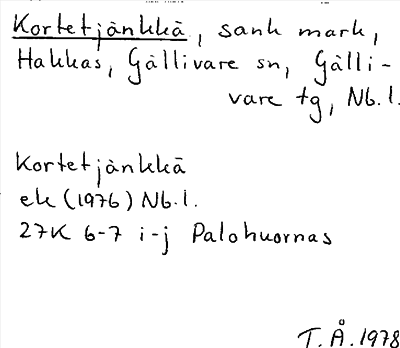 Kortetjänkkä, sank mark,
Hakkas, Gällivare sn, Gälli-
vare tg, Nb.l.
Kortetjänkkä
ek (1976) Nb.l.
27K 6-7 i-j Palohuornas
T.Å. 1978